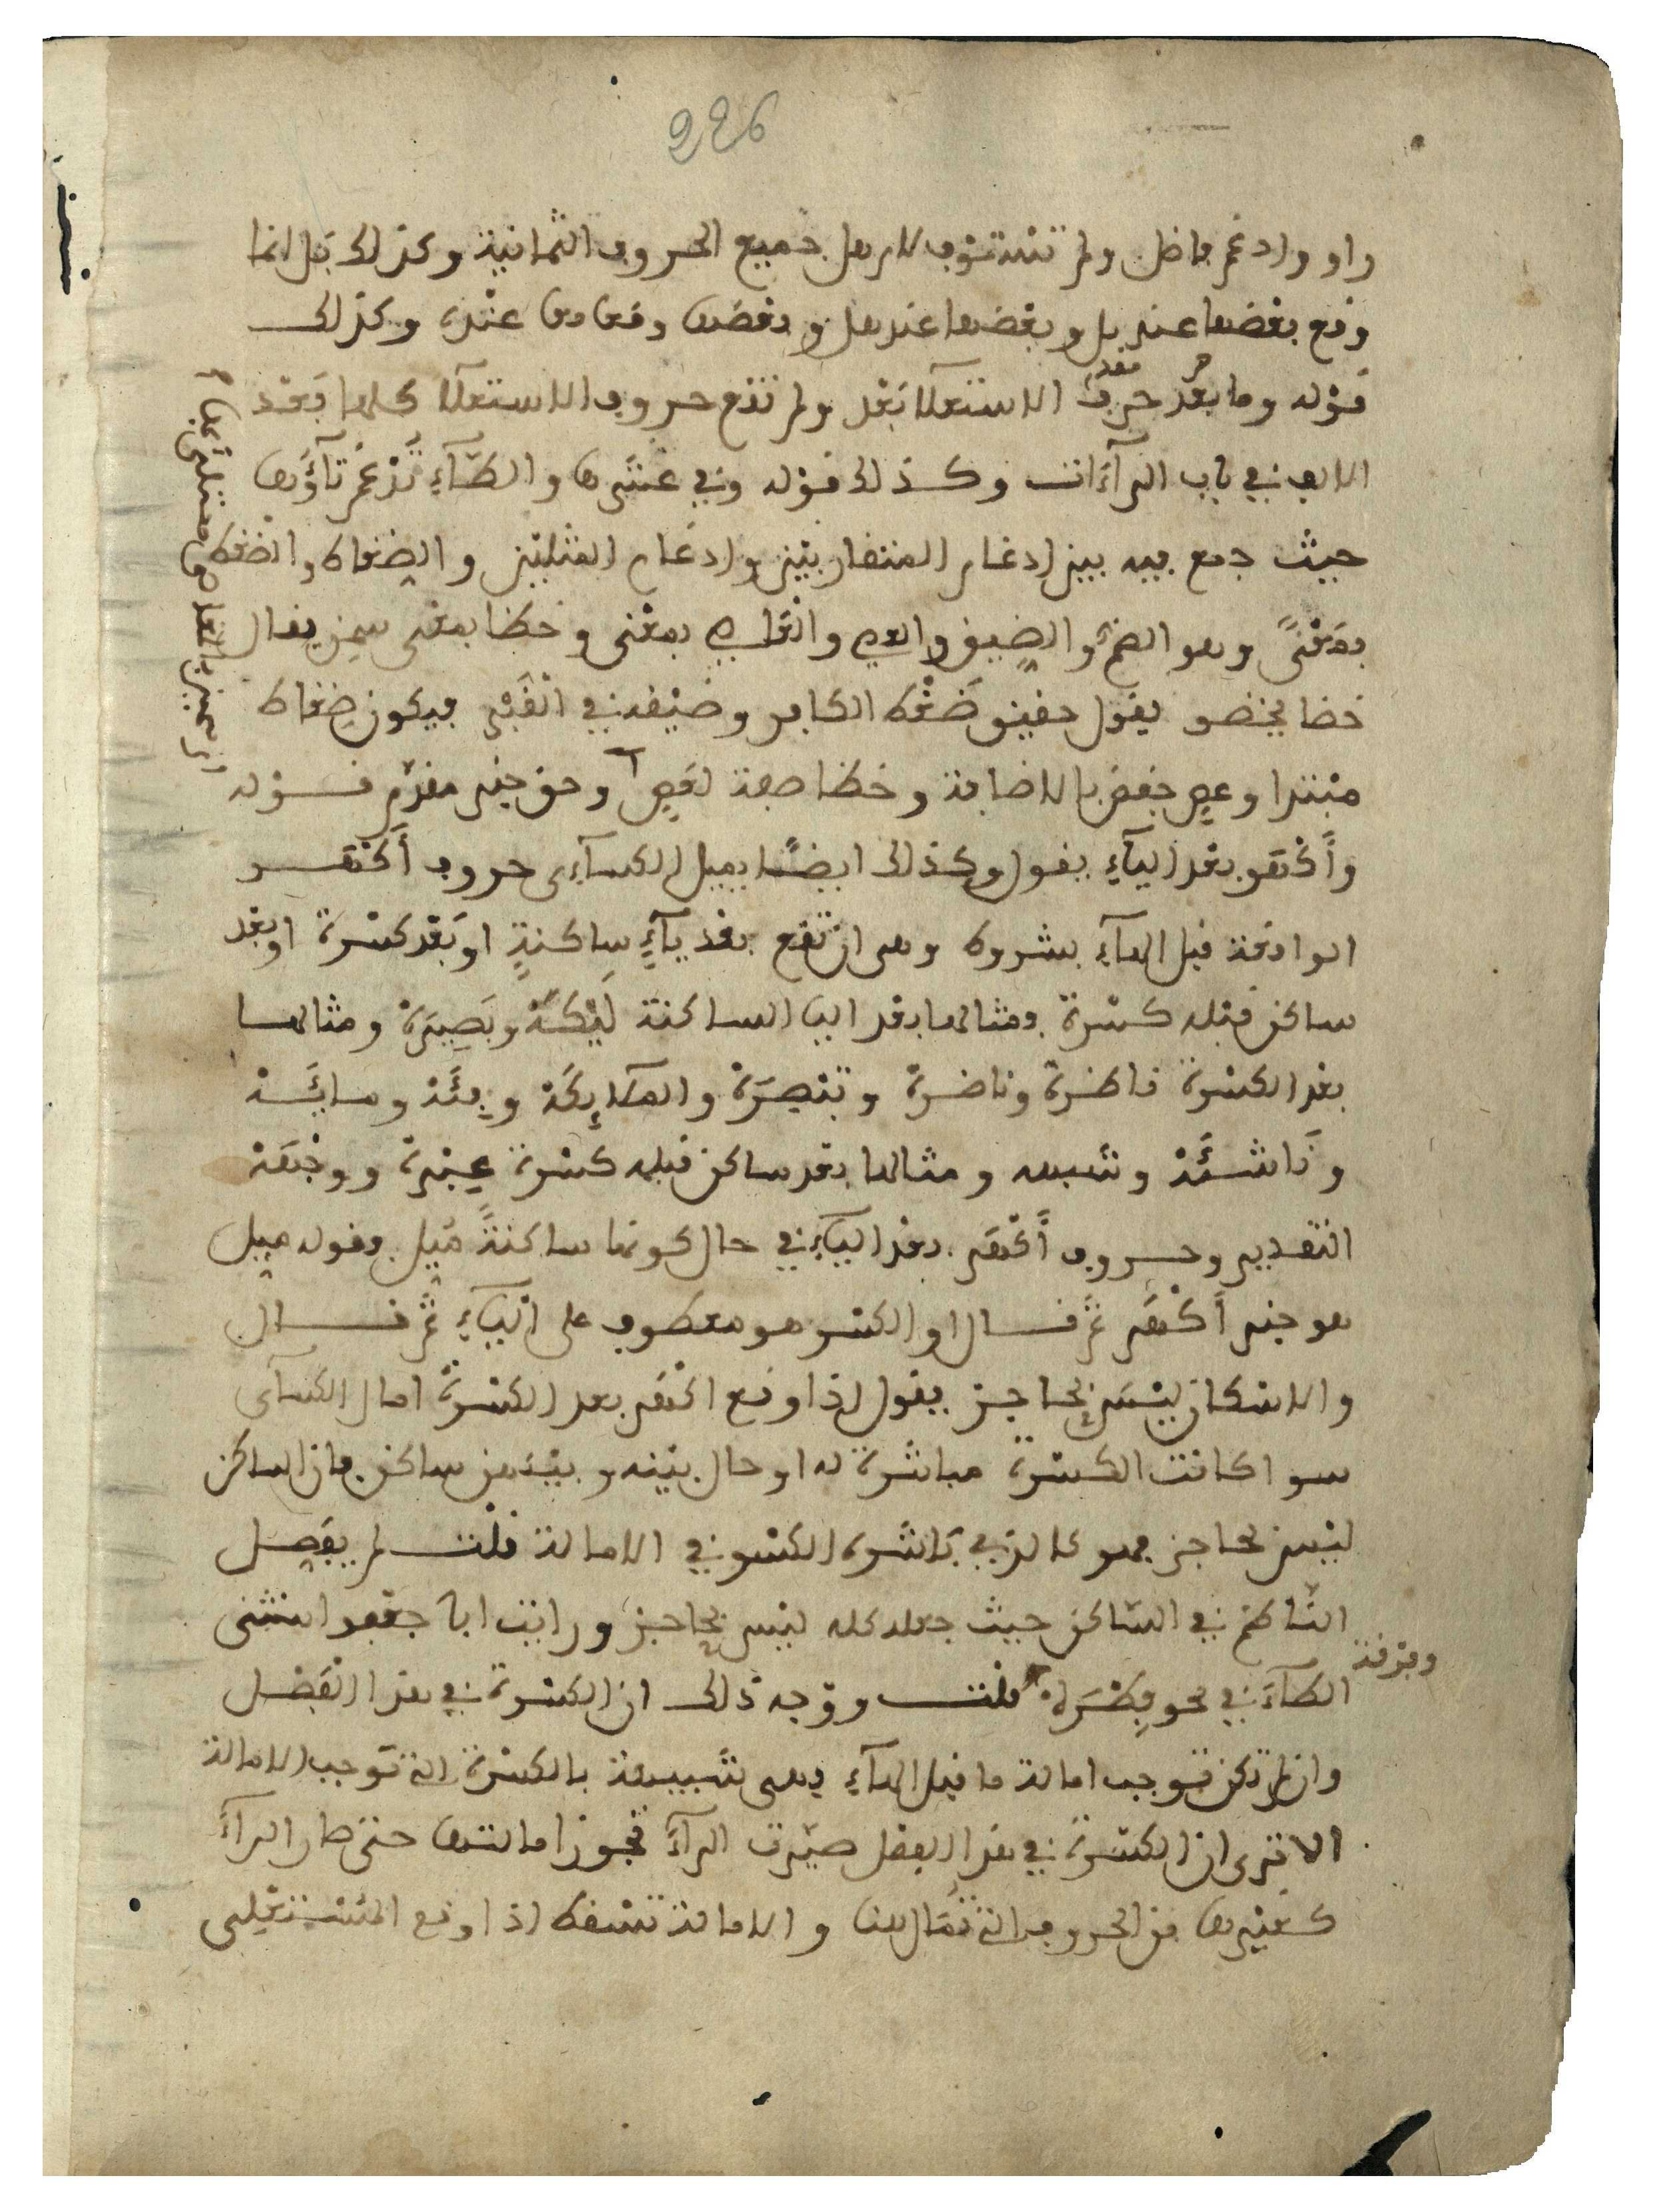 226
واو وادغم فاضل ولم تستوف لام هل جميع الحروف الثمانية وكذلك بل انما
وقع بعضها عند بل وبعضها عند هل وبعضها وقعا معا عنده وكذلك
قوله وما بعد حرف الاستعلا بعد ولم تقع حروف الاستعلا كلها بعد
الالف في باب الرآءات وكذلك قوله وفي عشرها والطآء تدغم تآؤها
حيث جمع فيه بين ادغام المتقاربين وادغام المثلين والضغاط والضغط
بمعنًى وهو الضم والضيق والعص والعاصي بمعنى وخظا بمعنى سمن يقال
خظا يخظو يقول حقيق ضغط الكافر وضيقه في القبر فيكون ضغاط
مبتدا وعص خفض بالاضافة وخظا صفة لعص وحق خبر مقدم قوله
وأكهر بعد اليآء يقول وكذلك ايضًا يميل الكسآءى حروف أكهر
الواقعة قبل الهآء بشروط وهى ان تقع بعد يآءٍ ساكنةٍ او بعد كسرة او بعد
ساكن قبله كسرة ومثالها بعد اليا الساكنة لَيْكَةْ وبَصِيرَةْ ومثالها
بعد الكسرة ناظرة وناضرة وتبصرة والملائكة وفئة ومائة
وناشئة وشبهه ومثالها بعد ساكن قبله كسرة عبرة ووجهة
التقدير وحروف أكهر بعد اليآء في حال كونها ساكنةً مُيل وقوله ميل
هو خبر أكهر ثم قال او الكسر هو معطوف على اليآء ثم قال
والاسكان ليس بحاجز يقول اذا وقع اكهر بعد الكسرة امال الكسآى
سوا كانت الكسرة مباشرة له او حال بينه وبينهن ساكن فان الساكن
ليس بحاجز فهو كالذي باشره الكسر في الامالة قلت لم يفصل
الناظم في الساكن حيث جعله كله ليس بحاجز ورايت ابا جعفر استثنى
الطآء في نحو فِطْرَة قلت ووجه ذلك ان الكسرة في هذا الفصل
وان لم تكن توجب امالة ما قبل الهآء فهى شبيهة بالكسرة التي توجب الامالة
الا ترى ان الكسرة في هذا الفصل صيرت الرآءَ تجوز امالتها حتى صار الرآءُ
كغيرها من الحروف التي تمال هنا والامالة تسقط اذا وقع المستعلى